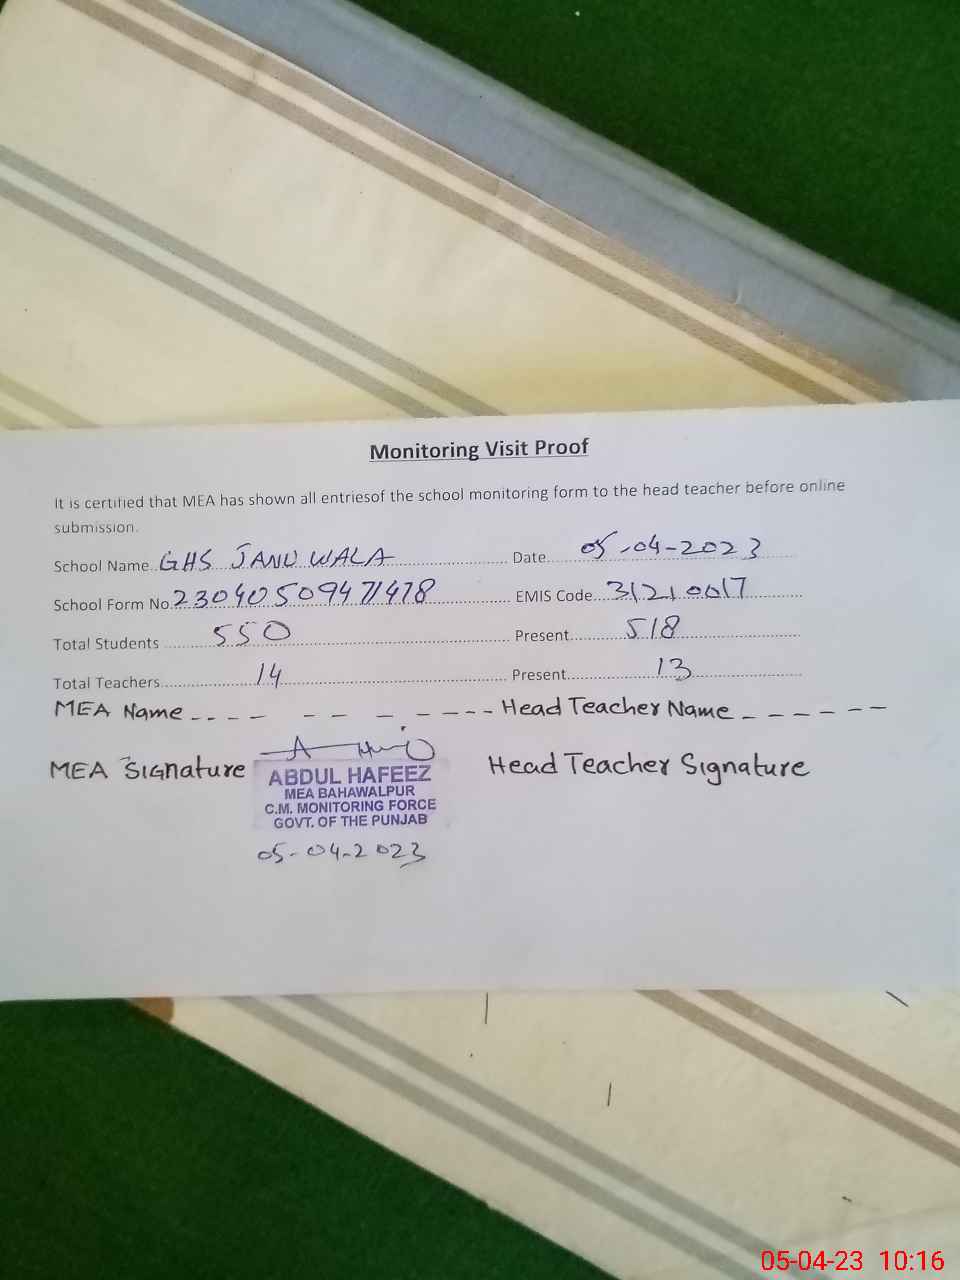 Monitoring Visit Proof
It is certified that MEA has shown all entriesof the school monitoring form to the head teacher before online
submission.
School Name..GHS JANU WALA........................ Date.....05-04-2023
School Form No.23040509471478.................. EMIS Code...31210017............
Total Students ............550........................................ Present............518..........................
Total Teachers......................14............................................. Present....................13........................
MEA Name ---- -- - ---- Head Teacher Name ------
MEA Signature Head Teacher Signature
ABDUL HAFEEZ
MEA BAHAWALPUR
C.M. MONITORING FORCE
GOVT. OF THE PUNJAB
05-04-2023
05-04-23 10:16